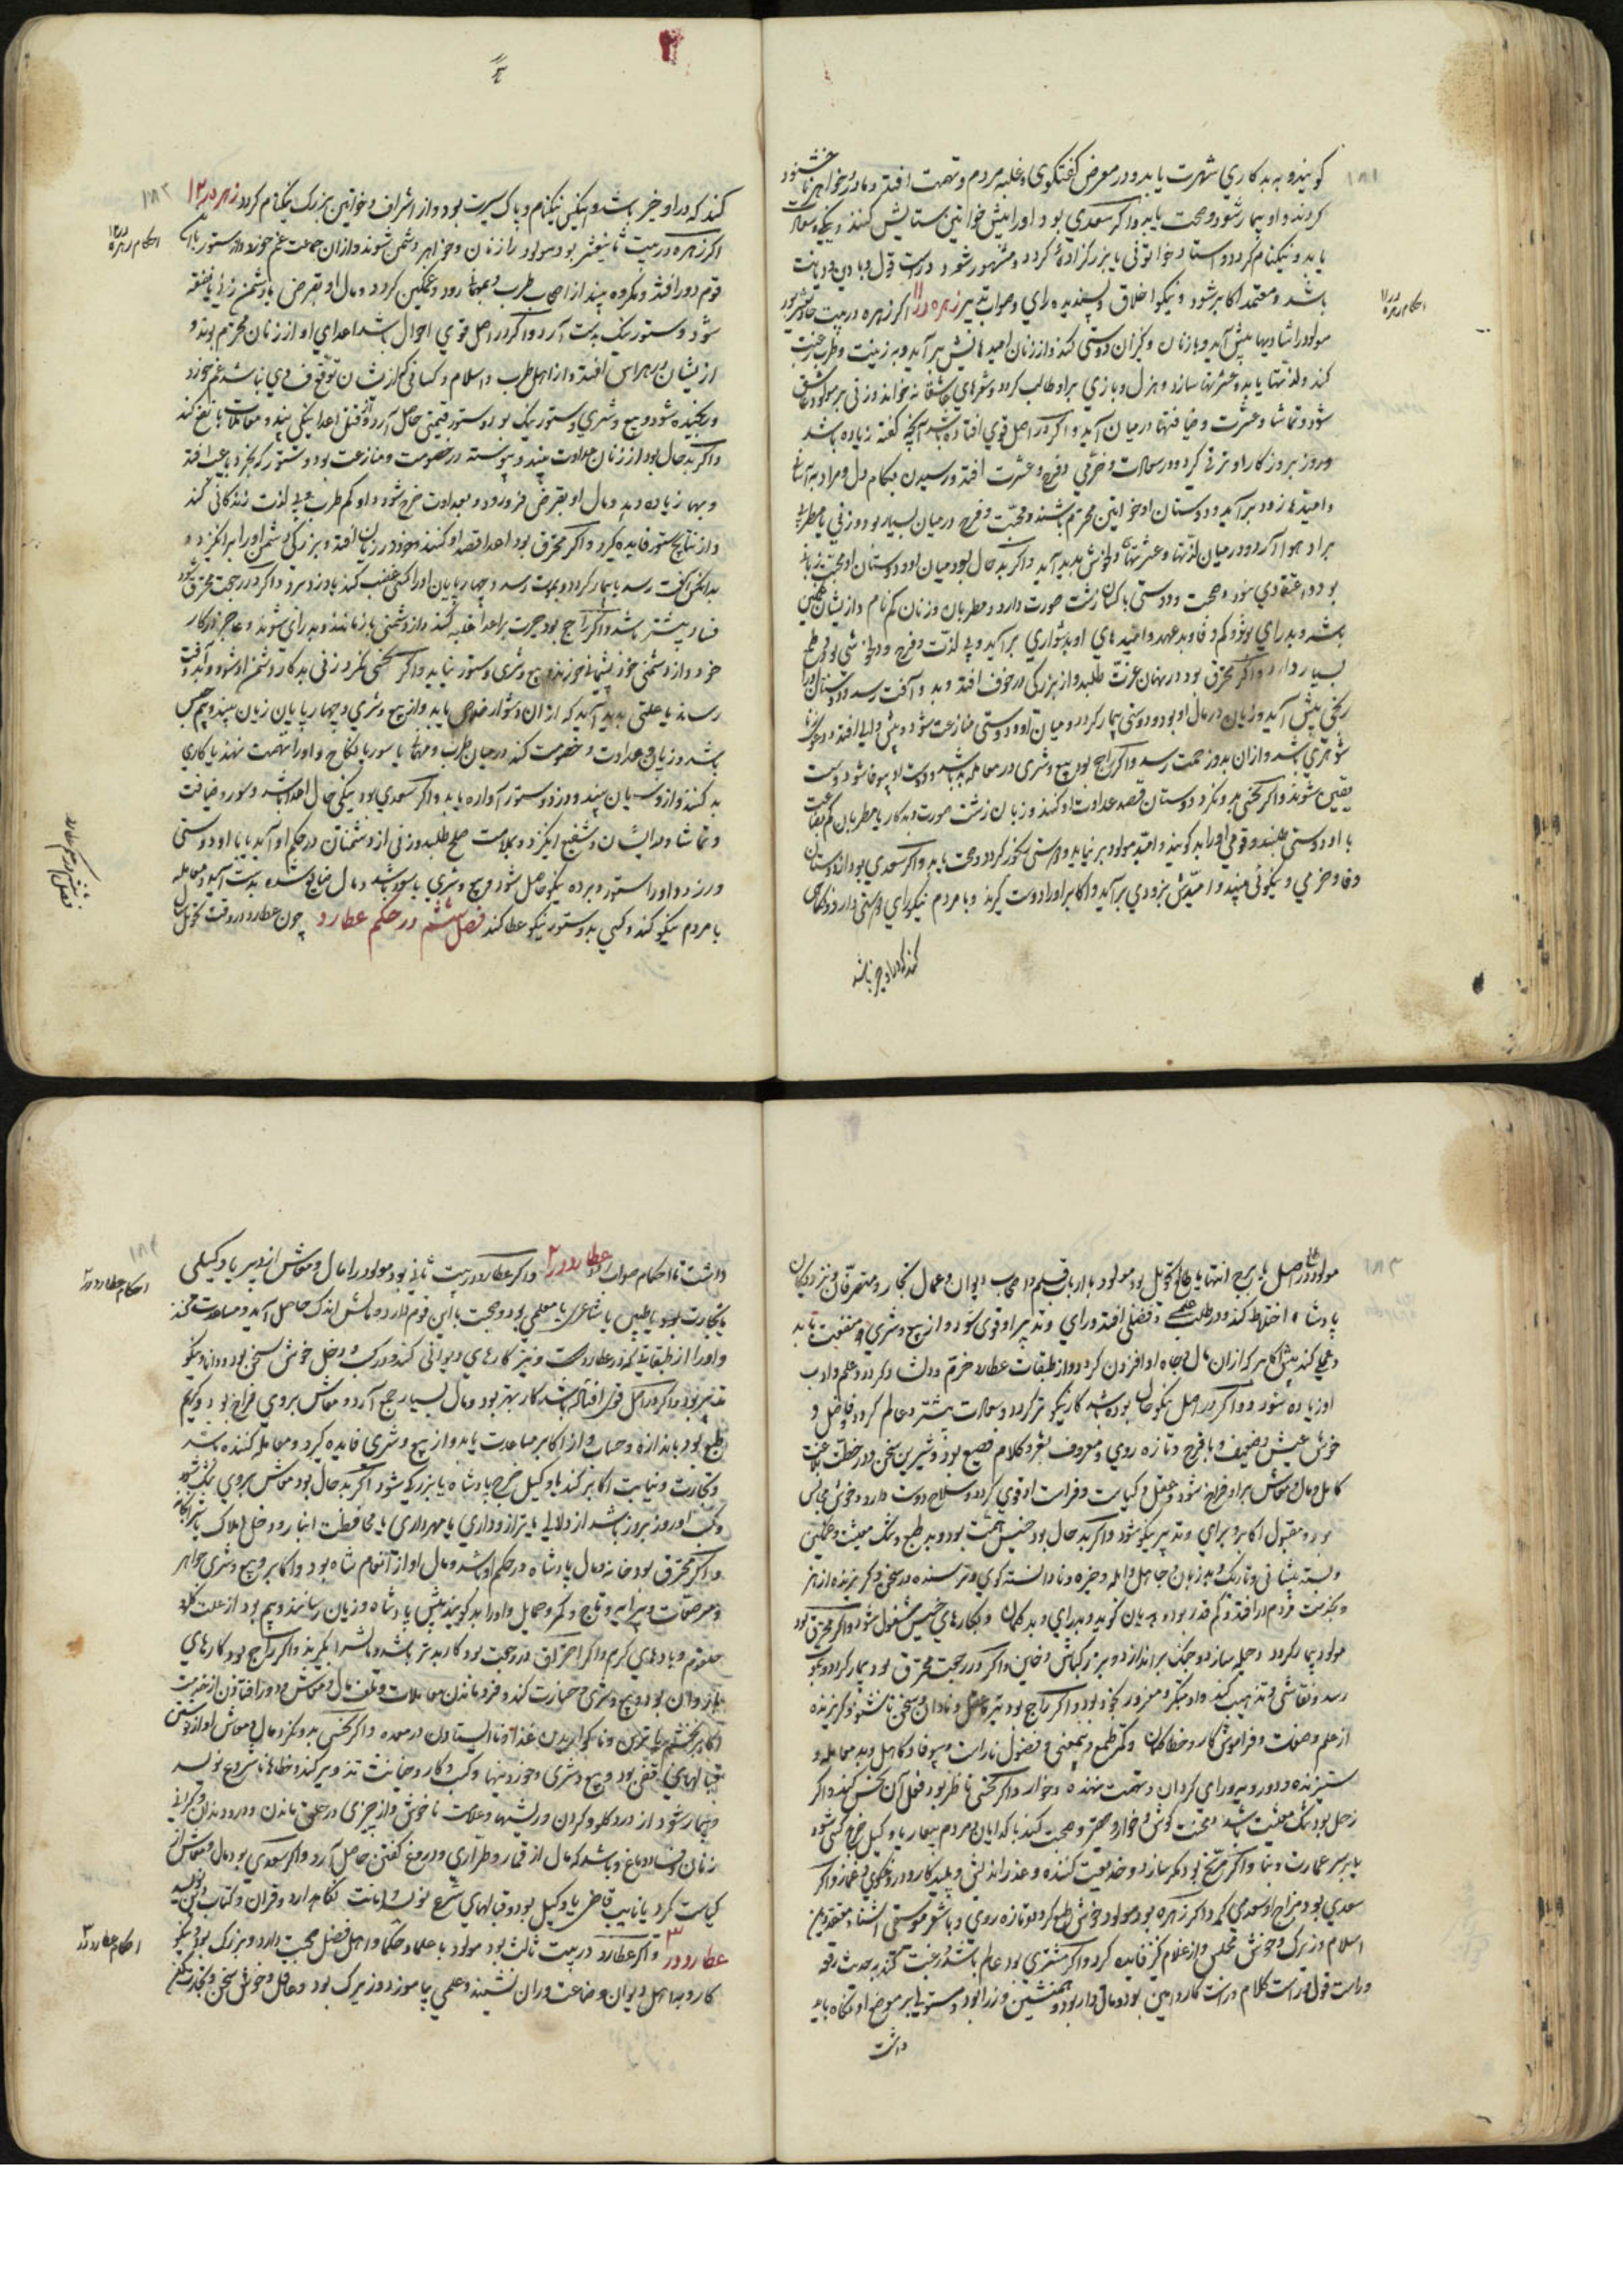 ۱۸۱
گویند و به بدکاری شهرت یابد و در معرض گفتگوی و غلبه مردم و تهمت افتد و مادر و خواهر ناخشنود
گردند و او بیمار شود و صحت یابد و اگر سعدی بود او را پیش خواتین ستایش کنند و نیکویی و سعادت
یابد و نیکنام گردد و استاد خواتونی یا بزرگزاده گردد و مشهور شود و درست قول و با دین و دیانت
باشد و معتمد اکابر شود و نیکو اخلاق و پسندیده رای و صواب تدبیر زهره در ۱۱ اگر زهره در بیت حادی عشر بود
احکام زهره در ۱۱
مولود را شادیها پیش آید و با زنان و کنیزان دوستی کند و از زنان امیدهایش برآید و به زینت و طرب رغبت
کند و لذتها یابد و عشرتها سازد و هزل و بازی بر او طالب گردد و شعرهای عاشقانه خواند و زنی بر مولود عاشق
شود و تماشا و عشرت و ضیافتها در میان آید و اگر در اصل قوی افتاده باشد آنچه گفته زیاده باشد
و روز بروز کار او ترقی گیرد و در سعادت و خرمی و فرح و عشرت افتد و رسیدن بکام دل و مراد به آسانی
و امیدها زود برآید و دوستان او خواتین محترم باشند و محبت و فرح در میان بسیار بود و زنی یا مطربی
براد هوا آرد و در میان لذتها و عشرتها و خوش پدید آید و اگر بد حال بود میان او و دوستان او محبت زبانی
بود و اعتقادی نبود و صحبت و دوستی با کسان زشت صورت دارد و مطربان و زنان کم نام و از ایشان غمگین
باشد و بد رای بود و کم وفا و بد عهد و امیدهای او بدشواری برآید و بی لذت و فرح و دلخوشی بود و طمع
بسیار دارد و اگر محترق بود در پنهان عزت طلبد و از بزرگی در خوف افتد و بد و آفت رسد و دوستان او را
رنجی پیش آید و زیان در مال او بود و دوستی بیمار گردد و میان او و دوستی منازعت شود
شوهری باشد و از آن بدو زحمت رسد و اگر راجع بود بیع و شری در معامله بد باشد و دوست او بیوفا شود و دوست
یقین نباشند و اگر نحسی بدو نگرد دوستان قصد عداوت او کنند و زنان زشت صورت و بدکار یا مطربان کم بضاعت
با او دوستی طلبند و قومی او را بد گویند و امید مولود بر نیاید و دوستی رنجور گردد و صحت یابد و اگر سعدی بود از دوستان
وفا و خرمی و نیکوئی بیند و امیدش بزودی برآید و اکابر او را دوست گیرند و با مردم نیکو رای دوستی دارد و نکاحی
کند که در او خیر باشد
۱۸۲
کند که در او خیر باشد و نیکی نیکنام و پاک سیرت بود و از اشراف و خواتین بزرگ نیکنام گردد زهره در ۱۲
احکام زهره در ۱۲
اگر زهره در بیت ثانیعشر بود مولود را زنان و خواهر دشمن شوند و از آن جماعت غم خورد و از ستور با آن
قوم دور افتد و مکروه بیند از اصحاب طرب و بمهمانی رود و غمگین گردد و مال او بقرض با دشمن زنی یا خفته
شود و ستور نیک بدست آرد و اگر در اصل قوی احوال باشد اعدای او از زنان محترم بوند و
از ایشان در هراس افتد و از اهل طرب و اسلام و کسانی که از شان توقع قوی نباشد غم خورد
و رنجیده شود و بیع و شری و ستور نیک بود و ستور قیمتی حاصل آرد و گفتن اعدا نیکی بیند و معاملات با نفع کند
و اگر بد حال بود از زنان عداوت بیند و پیوسته در خصومت و منازعت بود و ستور که بخرد با عیب افتد
و بها زیاده دهد و مال او بقرض فرو رود و بعداوت خرج شود و او کم طرب و بی لذت زندگانی کند
و از نتایج ستور فایده گیرد و اگر محترق بود اعدا قصد او کنند و خود در زندان افتد و بزرگی دشمن او را برانگیزد و
بدانکس آفت رسد یا بیمار گردد و بموت رسد و چهارپایان او را کسی غصب کند یا دزد برد و اگر در رجعت محترق بود
فساد بیشتر باشد و اگر راجع بود حیرت بر اعدا غلبه کند و از دشمنی باز مانند و بد رای شوند و عاجز در کار
خود و از دشمنی خود پشیمانی خورند و بیع و شری و ستور نیاید و اگر نحسی نگرد زنی بدکار دشمن او شود و بدو آفت
رساند یا علتی پدید آید که از آن دشوار خلاص یابد و از بیع و شری و چهارپایان زیان بیند و بیم حبس
باشد و زیان و عداوت و خصومت کند در میان طرب و مهمانی یا سور یا نکاح و او را تهمت نهند یا کاری
بد کنند و از دوستان زیان بیند و دزد و ستور آواره یابد و اگر سعدی بود نیکی حال اعدا باشد و سور و ضیافت
و تماشا و در ایشان و شفیع انگیزد و بملامت صلح طلبد و زنی از دشمنان در حکم او آید یا با او دوستی
ورزد و او را ستور و برده نیکو حاصل شود و بیع و شری با سود باشد و مال ضایع شده بدست آید و معامله
با مردم نیکو کند و کسی بدو ستور نیکو عطا کند فصل ششم در حکم عطارد چون عطارد در وقت تحویل سال
فصل ششم در حکم عطارد
۱۸۳
مولود در اصل یا برج انتها یا طالع تحویل بود مولود با ارباب قلم و اصحاب دیوان و عمال تجار و متصرفان و نزدیکان
پادشاه اختلاط کند و در طلب علمی و فضلی افتد و رای و تدبیر او قوی شود و از بیع و شری و منفعت یابد
و عملی کند پیش اکابر که از آن مال و جاه او افزون گردد و از طبقات عطارد خرم و دلشاد گردد و علم و ادب
او زیاده شود و اگر در اصل نیکو حال بوده باشد کار نیکوتر گردد و سعادت بیشتر و عالم گردد و فاضل و
خوش عیش و ضعیف و با فرح و تازه روی و معروف بشعر و کلام فصیح بود و شیرین سخن و در خطبت بلاغت
کامل و مال و معاش بر او فراخ شود و عقل و کیاست و فراست او قوی گردد و سلاح دوست دارد و خوش مجالس
بود و مقبول اکابر و برای و تدبیر نیکو شود و اگر بد حال بود خسیس همت بود و بد طبع و تنگ معیشت و غمگین
و بسته پیشانی و تاریک و بد زبان و جاهل و ابله و خیره و نادانسته گوی و ترسنده در سخن و گریزنده از هنر
و بخدمت مردم در افتد و کم قدر بود و هذیان گوید و بد رای و بد گمان و بکارهای خسیس مشغول شود و اگر محترق بود
مولود بیمار گردد و حیله سازد و جنگ بر اندازد و بزرگ باش و خاین و اگر در رجعت محترق بود بیمار گردد و بموت
رسد و نقاشی و تذهیب کند و او متکبر و مغرور بخود بود و اگر راجع بود تیره عقل و نادان و سخن ناشنو و گریزنده
از علم و صناعت و فراموش کار و خطا گمان و کم طمع و بیمعنی و فضول ناراست و بیوفا و کاهل و بد معامله و
ستیزنده و دور و بیرو و رای گردان و تهمت نهنده و خوار و اگر نحسی ناظر بود فعل آن نحس کند و اگر
زحل بود تنگ معیشت باشد و سخت کوش و خوار و حقیر و صحبت کند با گدایان و مردم بیمار یا وکیل خرج کسی شود
یا بر سر عمارت و بنا و اگر مریخ بود مکر سازد و خدیعت کننده و عذر اندیش و پلید کار و دروغگوی و غماز و اگر
سعدی بود مزاج او سعدی گیرد و اگر زهره بود مولود خوش طبع گردد و تازه روی و با شعر و موسیقی آشنا و معتقد دین
اسلام و زیرک و خوش مجلس و از غلام و کنیز فایده گیرد و اگر مشتری بود عالم باشد و رغبت کند به حدیث و فقه
و راست قول و درست کلام و راست کار و امین بود و مال دار بود و همنشین وزرا بود و مستولی بر موضع او نگاه باید
داشت
۱۸۴
داشت تا احکام صواب بود عطارد در ۲ و اگر عطارد در بیت ثانی بود مولود را مال و معاش از دبیری یا وکیلی
احکام عطارد در ۲
یا تجارت بود یا طبیبی یا شاعری یا معلمی بود و صحبت با این قوم دارد و مالش اندک حاصل آید و مساعدت کنند
و او را از طبقاتی که در عطارد است و نیز کارهای دیوانی کند و در کسب و دخل خوش سخن بود و دانا و نیکو
تدبیر بود و اگر در اصل قوی افتاده باشد کار بهتر بود و مال بسیار جمع آرد و معاش بر وی فراخ بود و کریم
طبع بود باندازه و حساب و از اکابر مساعدت یابد و از بیع و شری فایده گیرد و معامله کننده باشد
و تجارت و نیابت اکابر کند یا وکیل خرج پادشاه یا بزرگی شود اگر بد حال بود معاش بر وی تنگ شود
و کسب او روز بروز باشد از دلالی یا ترازو داری یا مهر داری یا محافظت انبار و دخل املاک یا شبگاه
و اگر محترق بود خانه و مال پادشاه در حکم او باشد و مال او از انعام شاه بود و اکابر و بیع و شری جواهر
و مرصعات و پیرایه و تاج و کمر و حمایل و او را بد گویند پیش پادشاه و زیان رسانند و بیم بود از علت گلو
حلقوم و بادهای گرم و اگر احتراق در رجعت بود کار بدتر باشد و اگر راجع بود کارهای
بازروان بود و بیع و شری و خسارت کند و فرو ماندن معاملات و تلف مال و معاش و دور افتادن از خدمت
اکابر و ناگواریدن غذا و نا ایستادن در معده و اگر نحسی بدو نگرد مال و معاش او از نوشتن
قبالهای قضی بود و بیع و شری و خورد و بیتها و کسب و کار و خیانت تزویر کند و خطها نا مشروع نویسد
و بیمار شود از درد گلو و گردن و ریشها و علامت ناخوش و از چیزی در حلق ماندن و درد دندان و گرانی
زبان و فساد دماغ و باشد که مال از قمار و طراری و دروغ گفتن حاصل آرد و اگر سعدی بود مال و معاش از
کیاست گیرد یا نایب قاضی یا وکیل بود و قبالهای شرع نویسد و امانت نگاهدارد و قرآن و کتاب دین نویسد
عطارد در ۳ و اگر عطارد در بیت ثالث بود مولود با علما و حکما و اهل فضل صحبت دارد و بزرگ بود و نیکو
احکام عطارد در ۳
کار و با اهل دیوان و ضاعت وران نشیند و علمی بیاموزد و زیرک بود و عاقل و خوش سخن